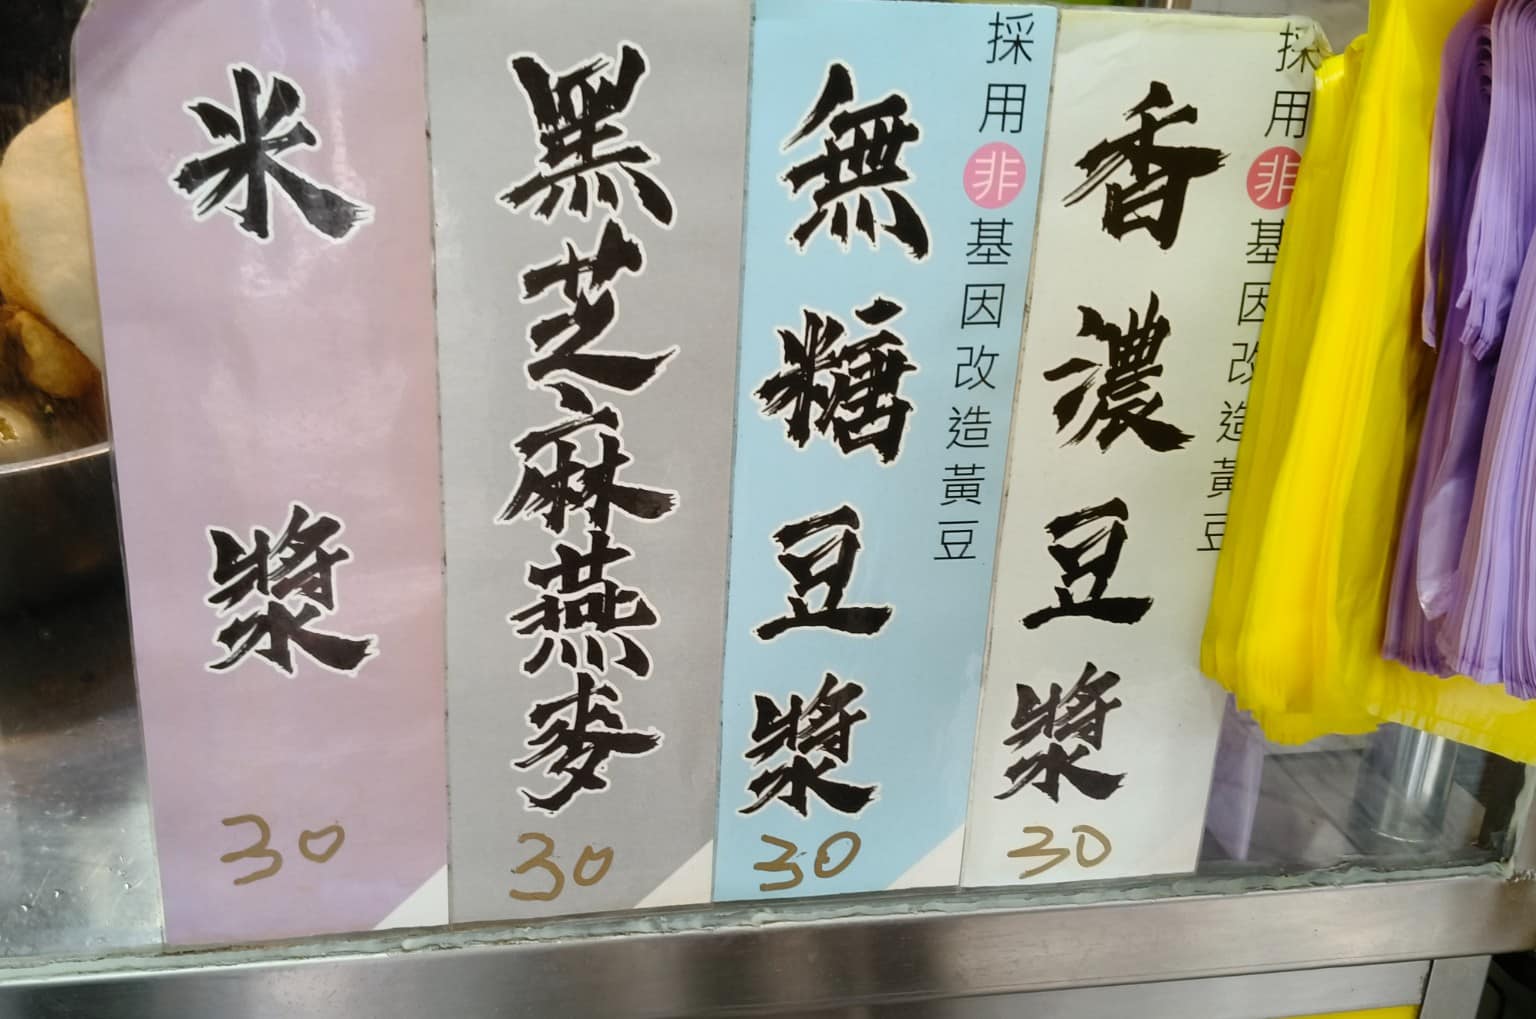 香濃豆漿
採用非基因改造黃豆
30
無糖豆漿
採用非基因改造黃豆
30
黑芝麻燕麥
30
米漿
30